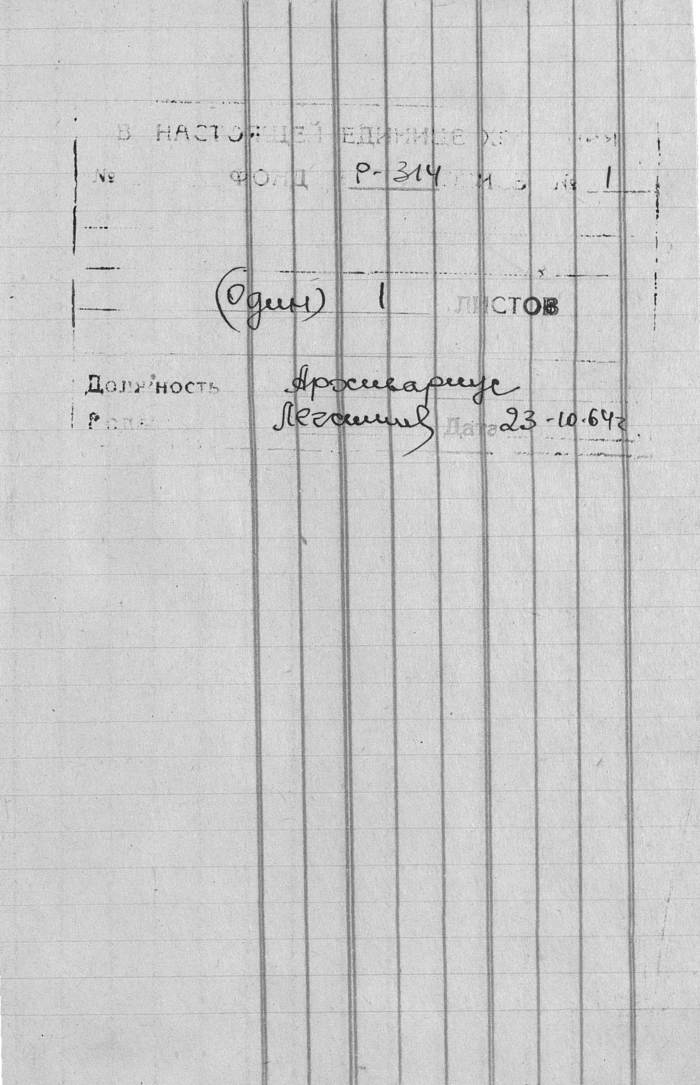 В НАСТОЯЩЕЙ ЕДИНИЦЕ
№ ФОНД Р-314 № 1
(Один) 1 ЛИСТОВ
Должность Архивариус
Дата 23-10-64г